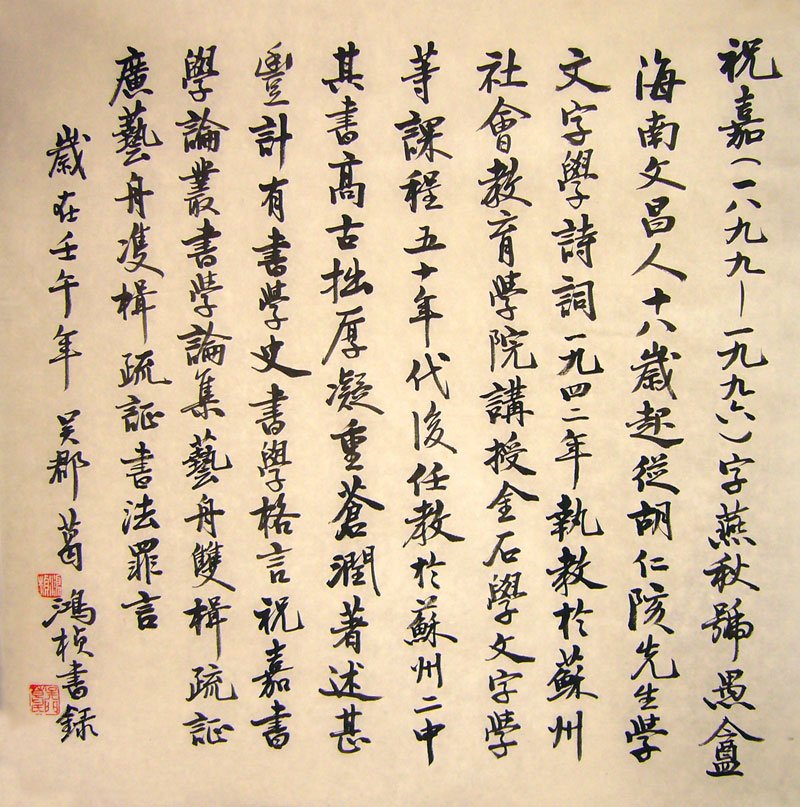 祝嘉(一八九九—一九九六)字燕秋號愚盦
海南文昌人十八歲起從胡仁陔先生學
文字學詩詞一九四二年執教於蘇州
社會教育學院講授金石學文字學
等課程五十年代後任教於蘇州二中
其書高古拙厚凝重蒼潤著述甚
豐計有書學史書學格言祝嘉書
學論叢書學論集藝舟雙楫疏証
廣藝舟雙楫疏証書法罪言
歲在壬午年吳郡葛鴻楨書録